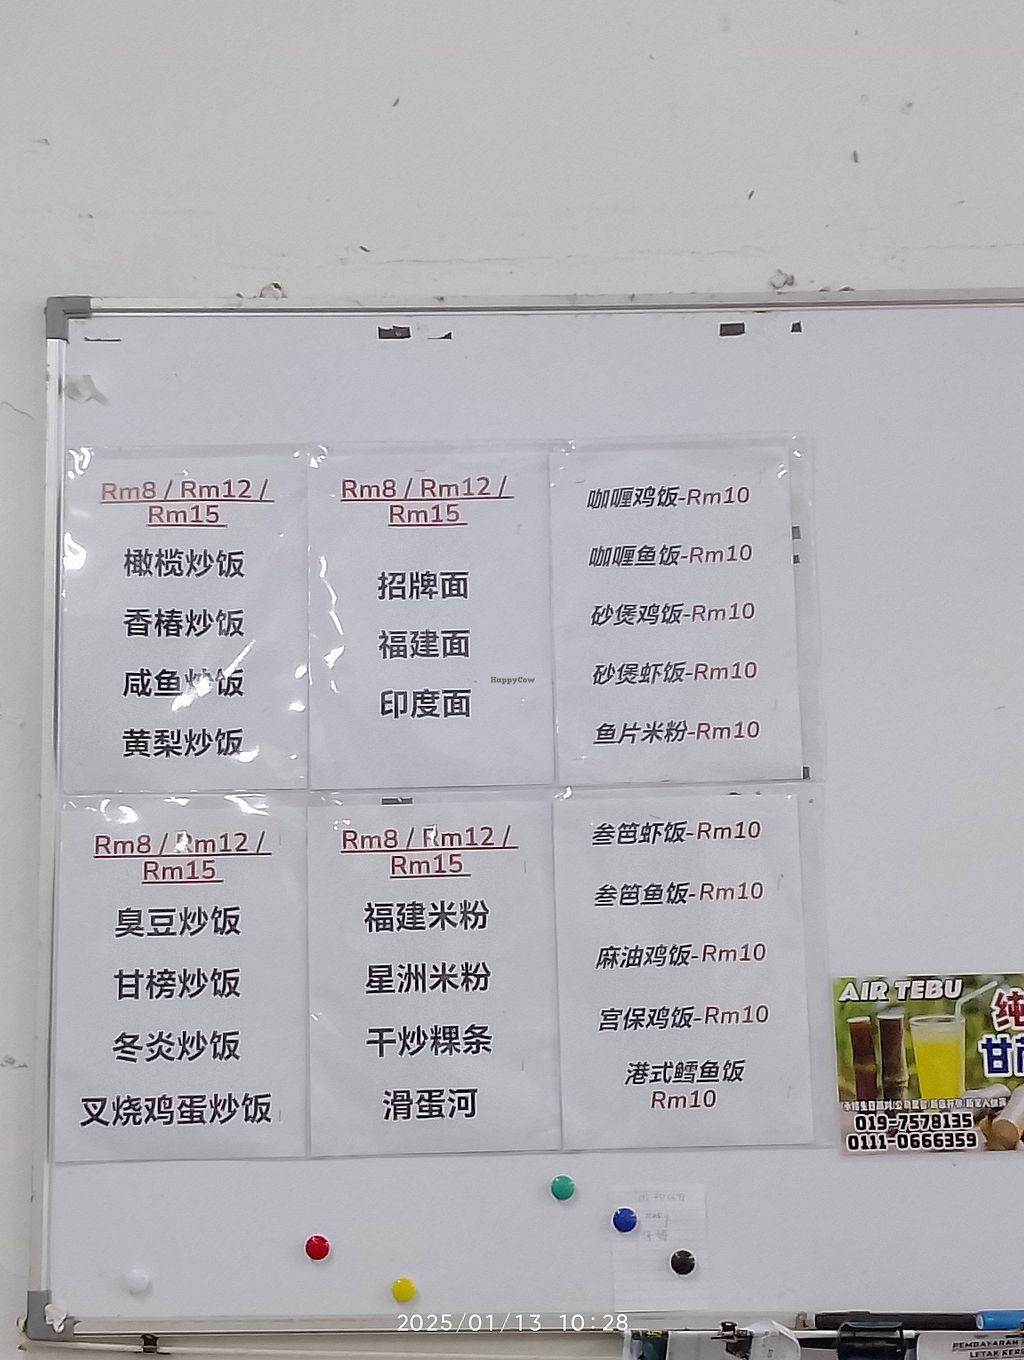 Rm8 / Rm12 /
Rm15
橄榄炒饭
香椿炒饭
咸鱼炒饭
黄梨炒饭
Rm8 / Rm12 /
Rm15
招牌面
福建面
印度面
咖喱鸡饭-Rm10
咖喱鱼饭-Rm10
砂煲鸡饭-Rm10
砂煲虾饭-Rm10
鱼片米粉-Rm10
HappyCow
Rm8 / Rm12 /
Rm15
臭豆炒饭
甘榜炒饭
冬炎炒饭
叉烧鸡蛋炒饭
Rm8 / Rm12 /
Rm15
福建米粉
星洲米粉
干炒粿条
滑蛋河
叁笆虾饭-Rm10
叁笆鱼饭-Rm10
麻油鸡饭-Rm10
宫保鸡饭-Rm10
港式鳕鱼饭
Rm10
AIR TEBU
纯
甘
019-7578135
0111-0666359
2025/01/13 10:28
PEMBAYARAN
LETAK